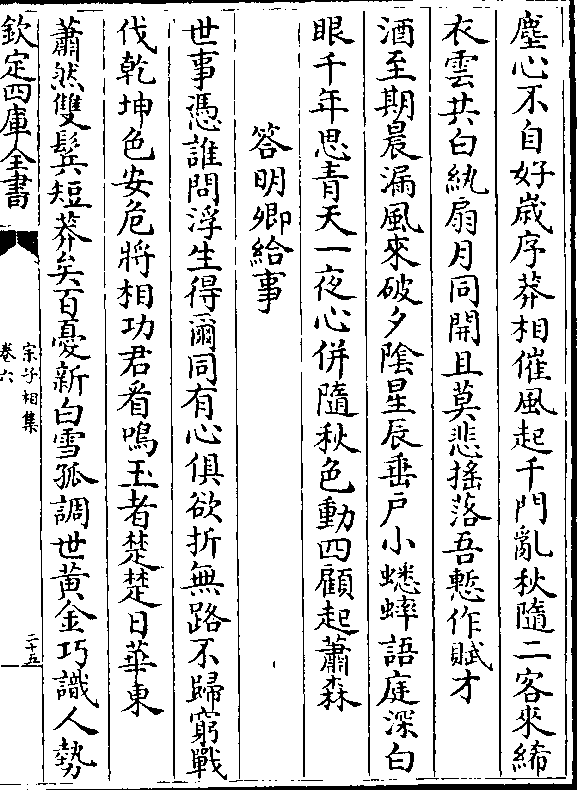 塵心不自好歲序莽相催風起千門亂秋隨二客來絺
衣雲共白紈扇月同開且莫悲搖落吾慙作賦才
酒至期晨漏風來破夕隂星辰垂戸小蟋蟀語庭深白
眼千年思青天一夜心併隨秋色動四顧起蕭森
答明卿給事
世事憑誰問浮生得爾同有心俱欲折無路不歸窮戰
伐乾坤色安危將相功君看鳴玉者楚楚日華東
蕭然雙鬂短莽矣百憂新白雪孤調世黄金巧識人勢
欽定四庫全書
宗子相集
卷六
二十五